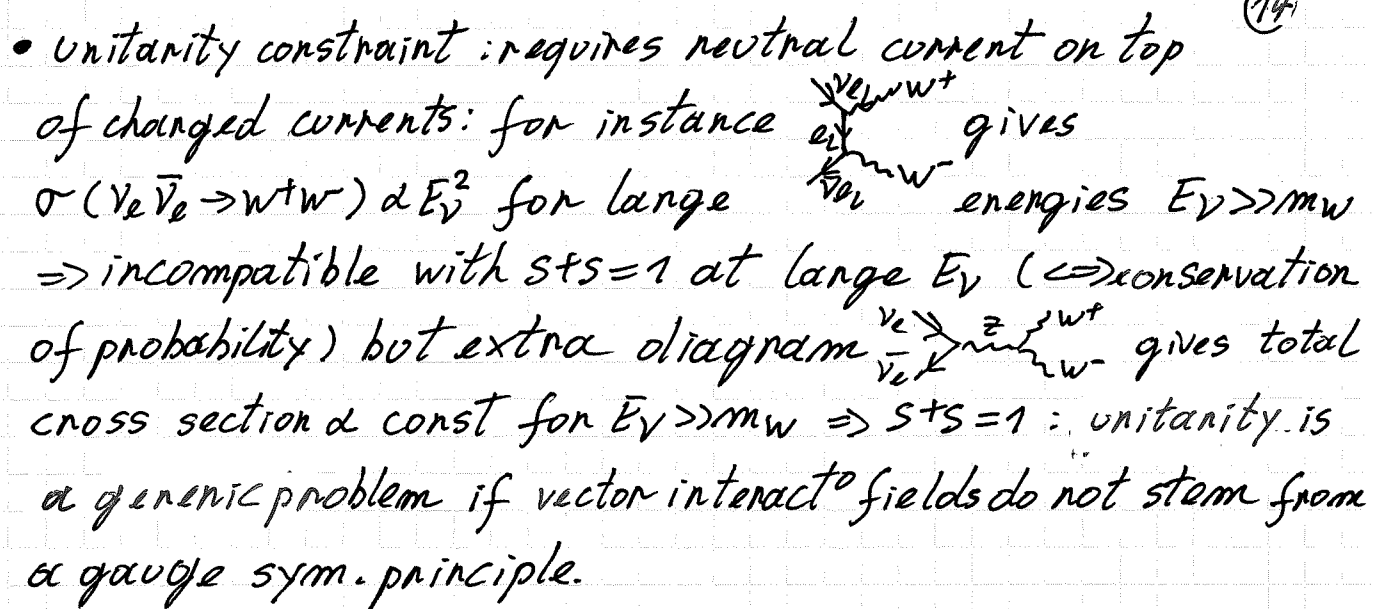 14
• unitarity constraint : requires neutral current on top
of charged currents: for instance νeL W+ eL ν̄eL W- gives
σ(νe ν̄e → W+W-) α Eν² for large energies Eν>>mW
=> incompatible with S+S=1 at large Eν (<=>conservation
of probability) but extra diagram νe ν̄e Z W+ W- gives total
cross section α const for Eν>>mW => S+S=1 : unitarity is
a generic problem if vector interact° fields do not stem from
a gauge sym. principle.